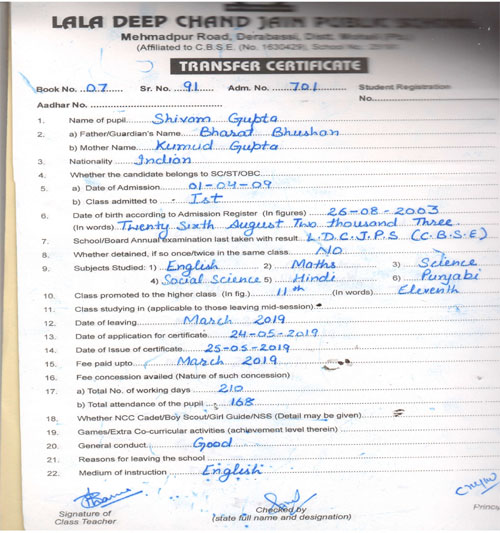 LALA DEEP CHAND JAIN PUBLIC SCHOOL
Mehmadpur Road, Derabassi, Distt. Mohali (Pb.)
(Affiliated to C.B.S.E. (No. 1630429), School No.
TRANSFER CERTIFICATE
Book No. 07 Sr. No. 91 Adm. No. 701 Student Registration
Aadhar No. No.
1. Name of pupil Shivam Gupta
2. a) Father/Guardian's Name Bharat Bhushan
b) Mother Name Kumud Gupta
3. Nationality Indian
4. Whether the candidate belongs to SC/ST/OBC
5. a) Date of Admission 01-04-09
b) Class admitted to Ist
6. Date of birth according to Admission Register (In figures) 26-08-2003
(In words) Twenty Sixth August Two thousand Three
7. School/Board Annual examination last taken with result L.D.C.J.P.S (C.B.S.E)
8. Whether detained, if so once/twice in the same class NO
9. Subjects Studied: 1) English 2) Maths 3) Science
4) Social Science 5) Hindi 6) Punjabi
10. Class promoted to the higher class (In fig.) 11th (In words) Eleventh
11. Class studying in (applicable to those leaving mid-session)
12. Date of leaving March 2019
13. Date of application for certificate 24-05-2019
14. Date of Issue of certificate 25-05-2019
15. Fee paid upto March 2019
16. Fee concession availed (Nature of such concession)
17. a) Total No. of working days 210
b) Total attendance of the pupil 168
18. Whether NCC Cadet/Boy Scout/Girl Guide/NSS (Detail may be given)
19. Games/Extra Co-curricular activities (achievement level therein)
20. General conduct Good
21. Reasons for leaving the school
22. Medium of instruction English
Signature of Checked by Princi
Class Teacher (state full name and designation)